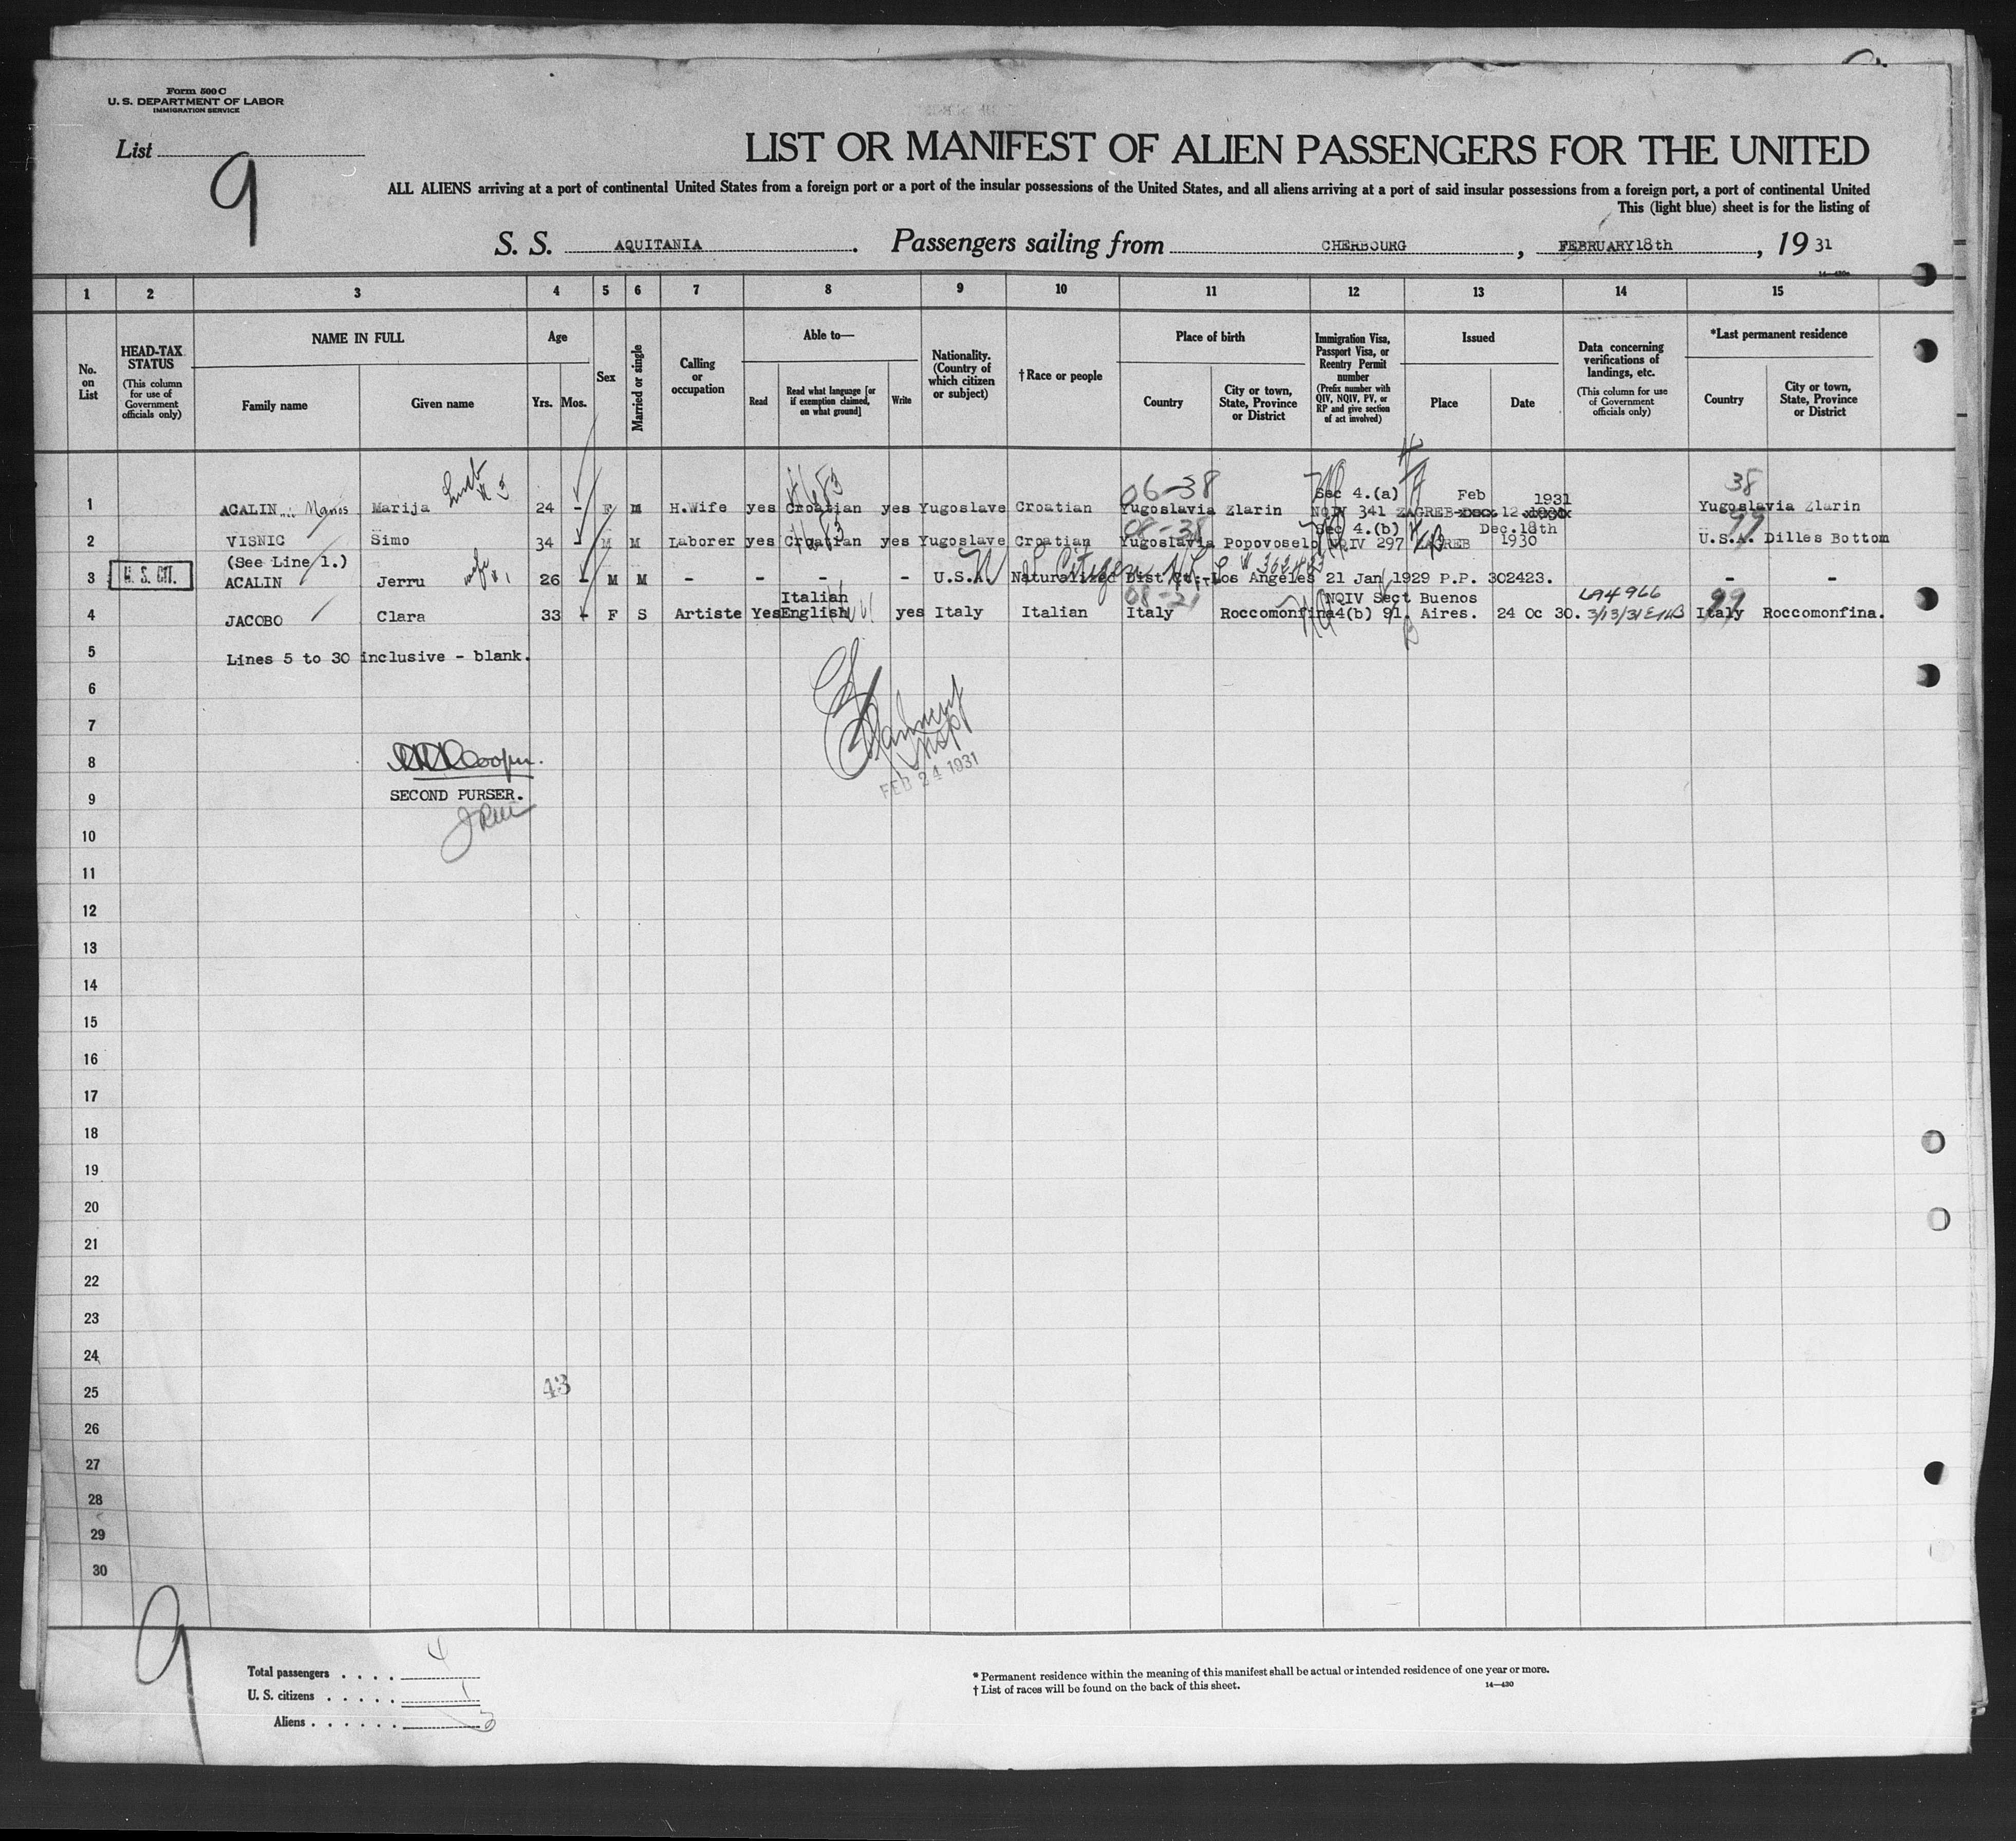 Form 500 C
U. S. DEPARTMENT OF LABOR
IMMIGRATION SERVICE
List
9
LIST OR MANIFEST OF ALIEN PASSENGERS FOR THE UNITED
ALL ALIENS arriving at a port of continental United States from a foreign port or a port of the insular possessions of the United States, and all aliens arriving at a port of said insular possessions from a foreign port, a port of continental United
This (light blue) sheet is for the listing of
S. S. AQUITANIA. Passengers sailing from CHERBOURG, FEBRUARY 18th, 19 31
14—430a
1 2 3 4 5 6 7 8 9 10 11 12 13 14 15
No. on List
HEAD-TAX STATUS
(This column for use of Government officials only)
NAME IN FULL
Family name
Given name
Age
Yrs. Mos.
Sex
Married or single
Calling or occupation
Able to—
Read
Read what language [or if exemption claimed, on what ground]
Write
Nationality. (Country of which citizen or subject)
† Race or people
Place of birth
Country
City or town, State, Province or District
Immigration Visa, Passport Visa, or Reentry Permit number
(Prefix number with QIV, NQIV, PV, or RP and give section of act involved)
Issued
Place
Date
Data concerning verifications of landings, etc.
(This column for use of Government officials only)
*Last permanent residence
Country
City or town, State, Province or District
06-38 38
Sec 4.(a) Feb 1931
1 ACALIN Marija 24 - F M H.Wife yes Croatian yes Yugoslave Croatian Yugoslavia Zlarin NQIV 341 ZAGREB 12 Yugoslavia Zlarin
08-38 Sec 4.(b) Dec.18th 99
2 VISNIC Simo 34 - M M Laborer yes Croatian yes Yugoslave Croatian Yugoslavia Popovoselo NQIV 297 ZAGREB 1930 U.S.A. Dilles Bottom
(See Line 1.)
3 U. S. CIT. ACALIN Jerru wife #1 26 - M M - - - - U.S.A. Naturalized Dist Ct:-Los Angeles 21 Jan 1929 P.P. 302423. - -
U S Citizen
Italian 08-21 NQIV Sect Buenos LA4966 99
4 JACOBO Clara 33 - F S Artiste Yes English yes Italy Italian Italy Roccomonfina 4(b) 91. Aires. 24 Oc 30. 3/13/31 Italy Roccomonfina.
5 Lines 5 to 30 inclusive - blank.
6
7
8 Cooper.
FEB 24 1931
9 SECOND PURSER.
10
11
12
13
14
15
16
17
18
19
20
21
22
23
24
25 43
26
27
28
29
30
9
Total passengers . . . . 4
U. S. citizens . . . . . 1
Aliens . . . . . . 3
* Permanent residence within the meaning of this manifest shall be actual or intended residence of one year or more.
† List of races will be found on the back of this sheet.
14—430